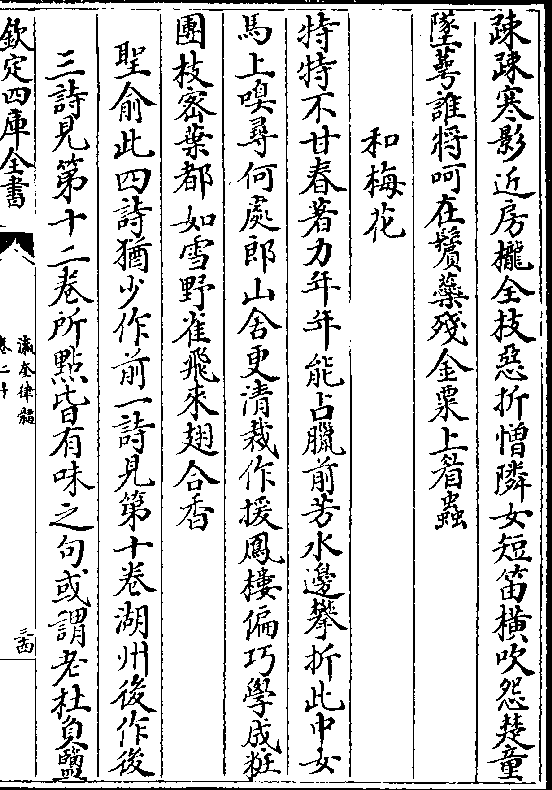 疎疎寒影近房櫳全枝惡折憎隣女短笛橫吹怨楚童
墜萼誰將呵在鬢藥殘金粟上眉蟲
和梅花
特特不甘春著力年年能占臘前芳水邊攀折此中女
馬上嗅尋何處郎山舍更清栽作援鳳樓偏巧學成粧
團枝密葉都如雪野雀飛來翅合香
聖俞此四詩猶少作前一詩見第十卷湖州後作後
三詩見第十二卷所點皆有味之句或謂老杜負鹽
欽定四庫全書
瀛奎律髓
卷二十
三十四